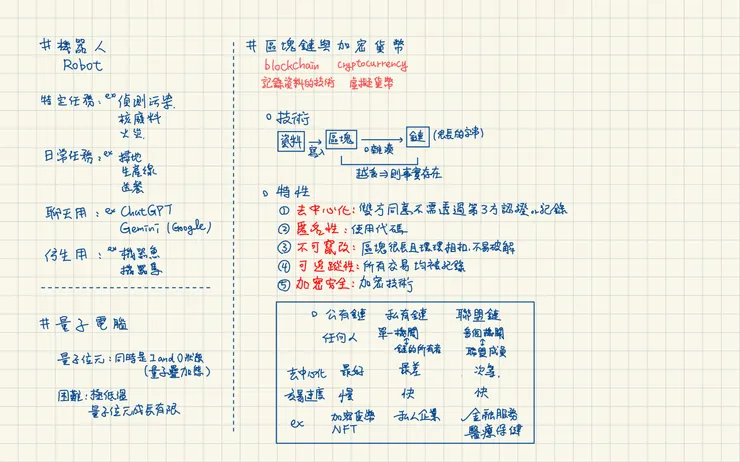 #機器人
Robot
特定任務:ex偵測污染
核廢料
火災
日常任務:ex掃地
生產線
送餐
聊天用:ex ChatGPT
Gemini (Google)
仿生用:ex機器魚
機器鳥
#量子電腦
量子位元:同時是1and0狀態
(量子疊加態)
困難:極低溫
量子位元成長有限
#區塊鏈與加密貨幣
blockchain cryptocurrency
記錄資料的技術 虛擬貨幣
。技術
資料 → 區塊 → 鏈 (很長的字串)
寫入 雜湊
越長⇒則事實存在
。特性
① 去中心化:雙方同意不需透過第3方認證or記錄
② 匿名性:使用代碼
③ 不可竄改:區塊很長且環環相扣,不易破解
④ 可追蹤性:所有交易均被記錄
⑤ 加密安全:加密技術
。公有鏈 私有鏈 聯盟鏈
任何人 單一機關 多個機關
鏈的所有者 聯盟成員
去中心化 最好 最差 次等
交易速度 慢 快 快
ex 加密貨幣 私人企業 金融服務
NFT 醫療保健